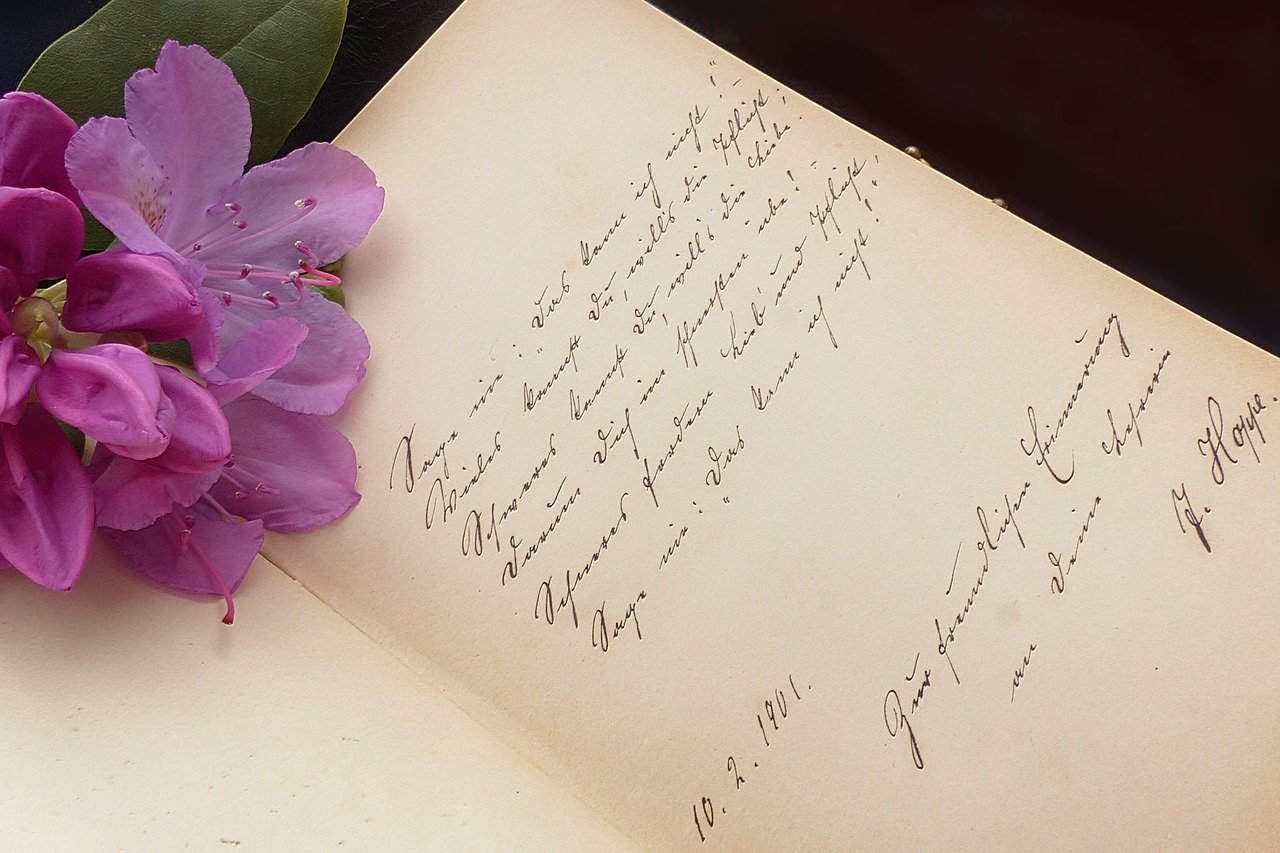 Sage nie: "Das kann ich nicht!" -
Vieles kannst Du, will's die Pflicht;
Schweres kannst Du, will's die Liebe.
Darum Dich im Schwersten übe! -
Schweres fordern Lieb' und Pflicht;
Sage nie: "Das kann ich nicht!"
Zur freundlichen Erinnerung
an Deine Lehrerin
J. Hoppe.
10. 2. 1901.